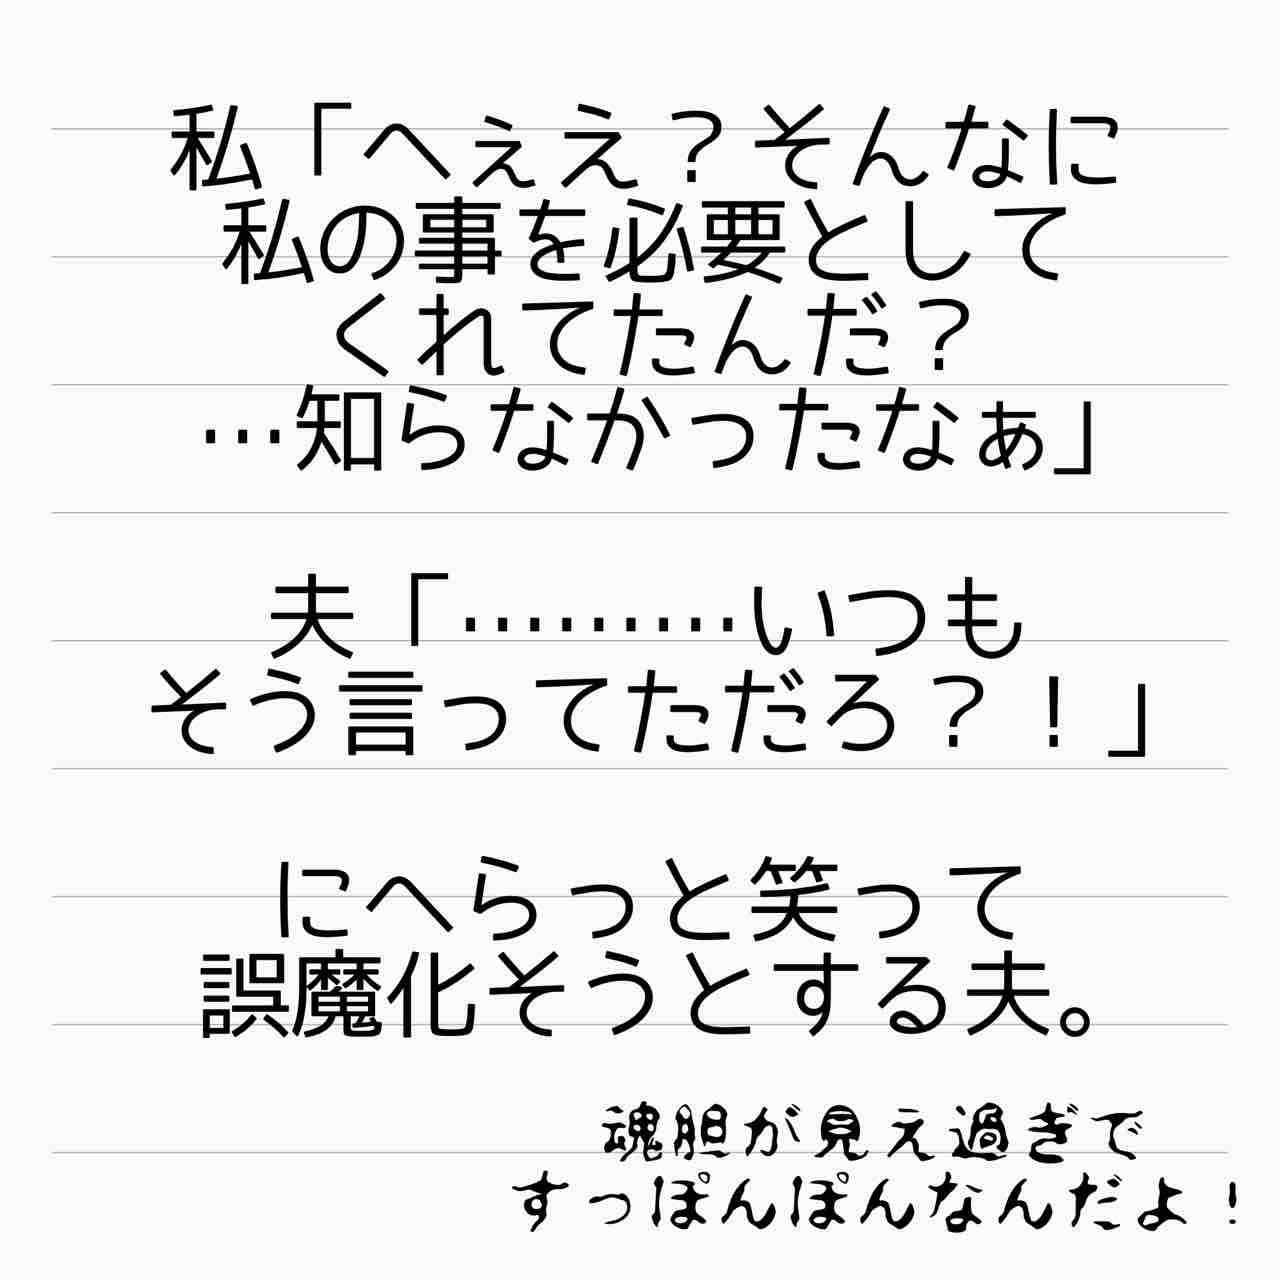 私「へぇえ？そんなに
私の事を必要として
くれてたんだ？
…知らなかったなぁ」
夫「………いつも
そう言ってただろ？！」
にへらっと笑って
誤魔化そうとする夫。
魂胆が見え過ぎで
すっぽんぽんなんだよ！